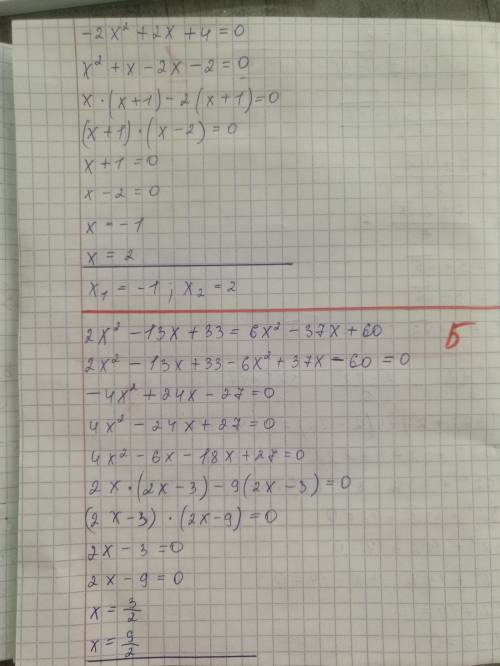 -2x² + 2x + 4 = 0
x² + x - 2x - 2 = 0
x · (x + 1) - 2 (x + 1) = 0
(x + 1) · (x - 2) = 0
x + 1 = 0
x - 2 = 0
x = -1
x = 2
x₁ = -1 ; x₂ = 2
2x² - 13x + 33 = 6x² - 37x + 60
Б
2x² - 13x + 33 - 6x² + 37x - 60 = 0
-4x² + 24x - 27 = 0
4x² - 24x + 27 = 0
4x² - 6x - 18x + 27 = 0
2x · (2x - 3) - 9 (2x - 3) = 0
(2x - 3) · (2x - 9) = 0
2x - 3 = 0
2x - 9 = 0
x = 3/2
x = 9/2